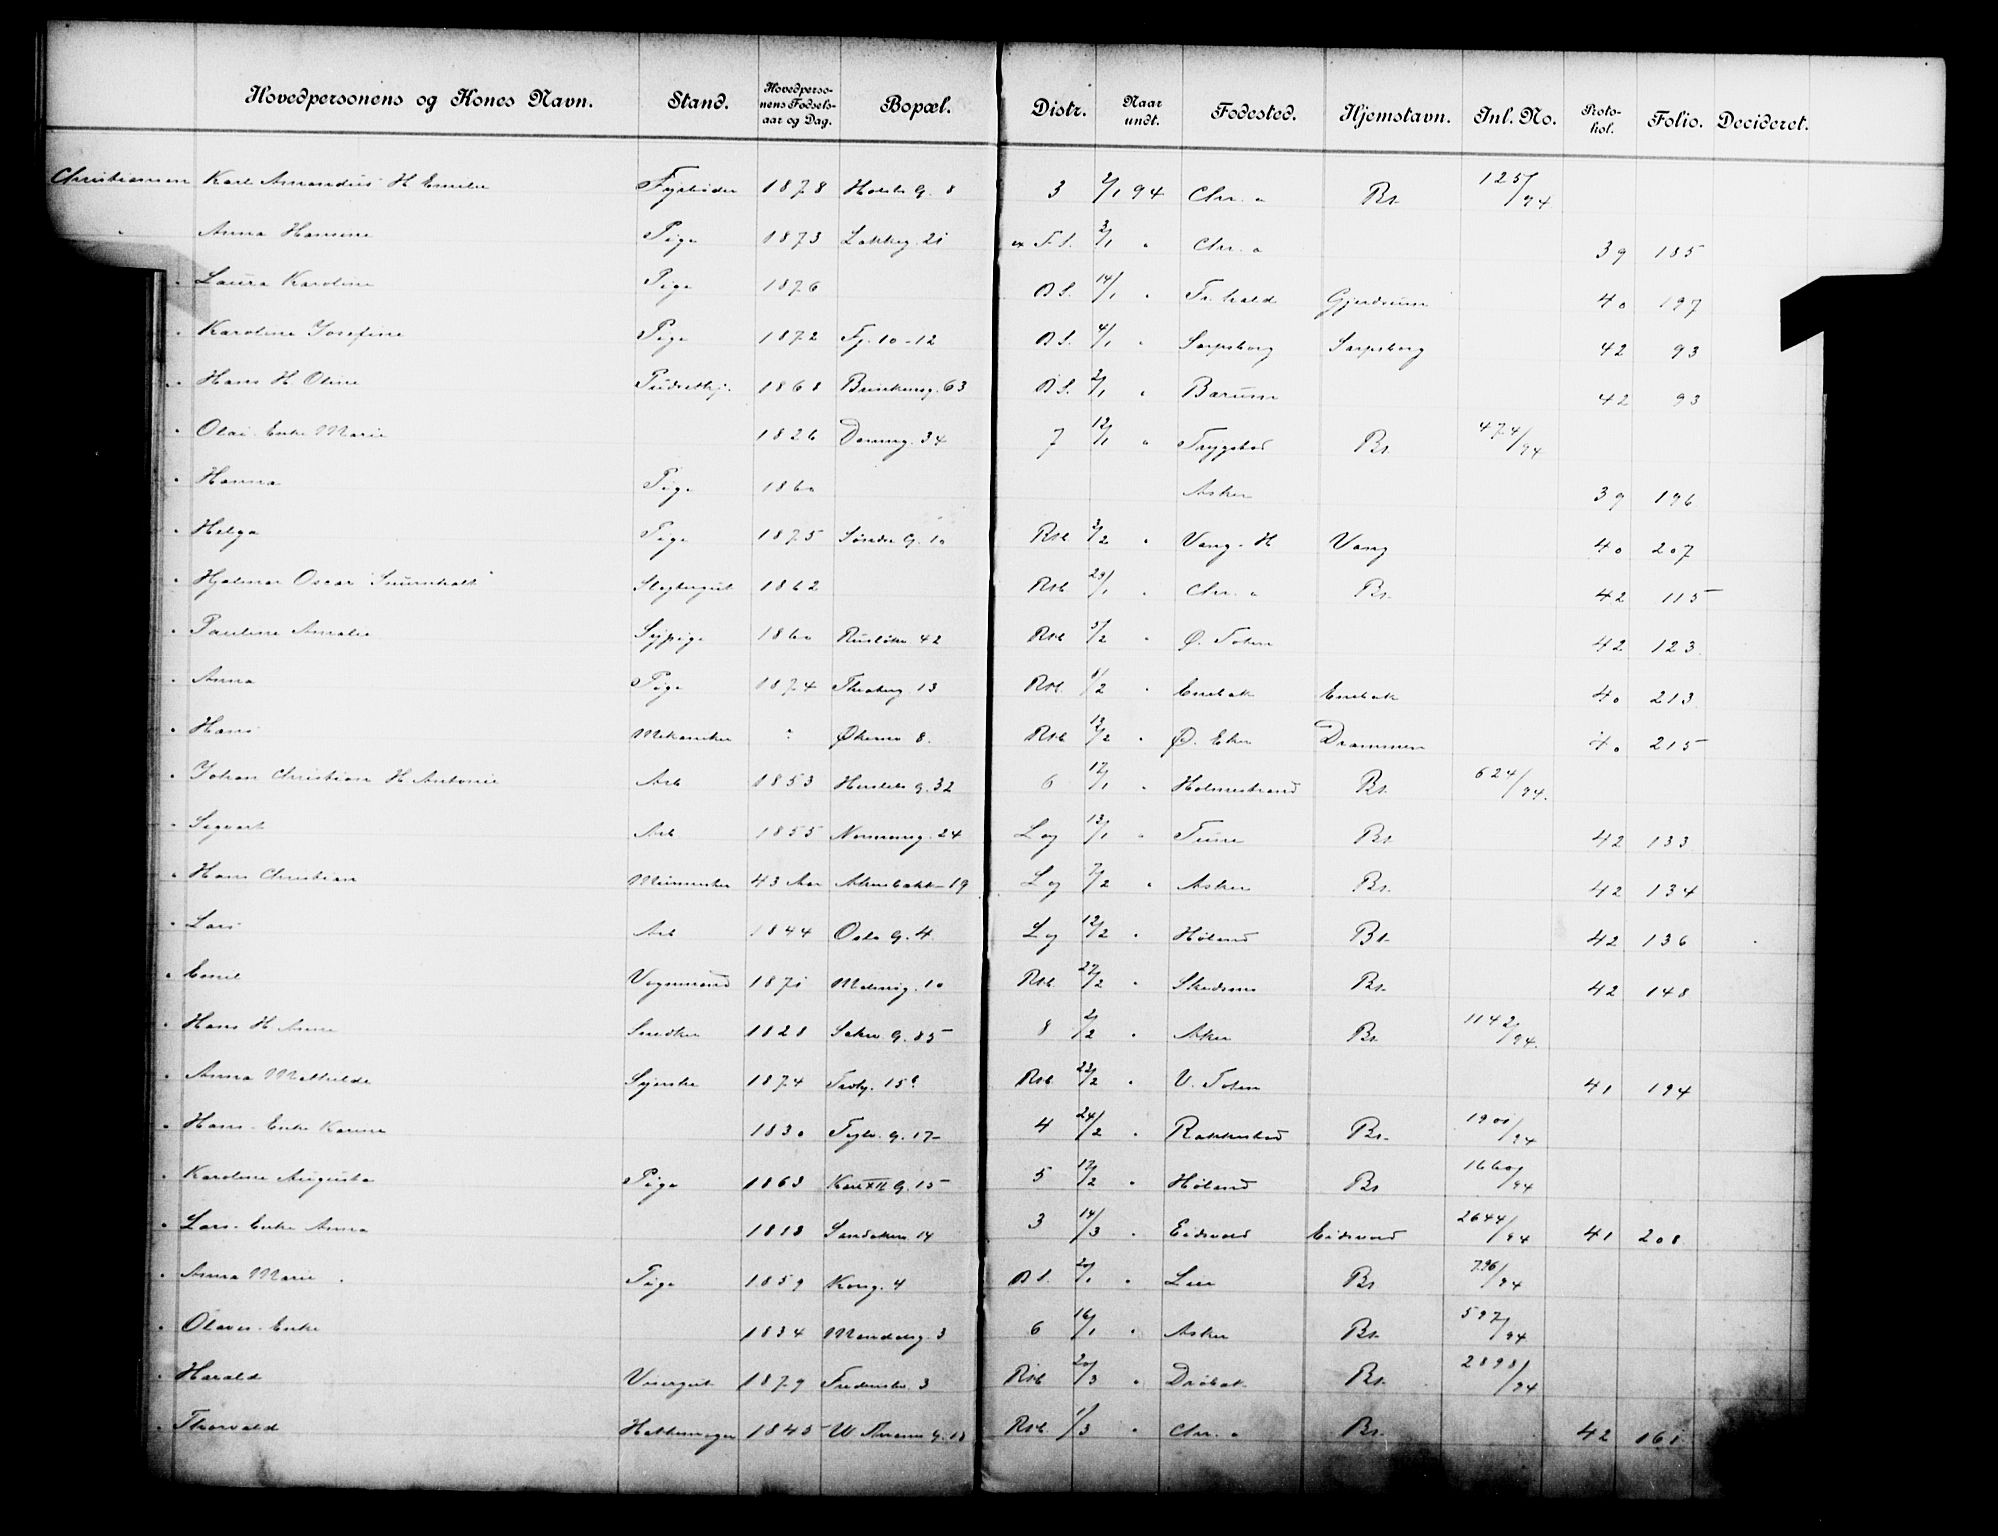 Hovedpersonens og Kones Navn. Stand. Hovedpersonens Fødselsaar og Dag. Bopæl. Distr. Naar undt. Fødested. Hjemstavn. Inl. No. Protokol. Folio. Decideret.
Christiansen Karl Amandus H Emilie Fyrbøder 1878 Holsts G. 8 3 2/1 94 Chr. a Bt. 125/94
" Anna Hansine Pige 1873 Lakkeg. 21 F.S. 2/1 " Chr. a 39 185
" Laura Karoline Pige 1876 B S. 14/1 " Fr.hald Gjerdrum 40 197
" Karoline Josefine Pige 1872 Fj. 10-12 B S. 4/1 " Sarpsborg Sarpsborg 42 93
" Hans H Oline 1868 Brinkensg. 63 B S. 2/1 " Bærum 42 93
" Olai. Enke Marie 1826 34 7 12/1 " Trygstad Bt. 474/94
" Hanna Pige 1860 Asker 39 196
" Helga Pige 1875 Søndre G. 10 Rst. 3/2 " Vang. H Vang 40 207
" Hjalmar Oscar 1862 Rst. 29/1 " Chr. a Bt. 42 115
" Pauline Amalie Sypige 1860 Ruseløkv 42 Rst. 5/2 " Ø. Toten 42 123
" Anna Pige 1874 Theaterg. 13 Rst. 8/2 " Enebak Enebak 40 213
" Hans Mekaniker " Økernv 8. Rst. 13/2 " Ø. Eker Drammen 40 215
" Johan Christian H Antonie Arb 1853 Herslebs G. 32 6 17/1 " Holmestrand Bt. 624/94.
" Sigvart Arb 1855 Normansg. 24 Lag 13/1 " Tune Bt. 42 133
" Hans Christian Murmester 43 Aar Akersbakk-19 Lag 7/2 " Asker Bt. 42 134
" Lars Arb 1844 Oslo G. 4. Lag 12/2 " Høland Bt. 42 136
" Emil Vognmand 1871 10 Rst. 27/2 " Skedsmo Bt. 42 148
" Hans H Anne Snedker 1828 G. 85 8 2/2 " Aker Bt. 1142/94.
" Anna Mathilde Syerske 1874 15 Rst. 23/2 " V. Toten 41 194
" Hans. Enke Karine 1830 G. 17- 4 24/2 " Rakkestad Bt. 1901/94
" Karoline Augusta Pige 1863 Karl XII G. 15 5 17/2 " Høland Bt. 1660/94
" Lars. Enke Anna 1818 Sandakerv 14 3 14/3 " Eidsvold Eidsvold 2644/94 41 208
" Anna Marie Pige 1859 Kong. 4 B S. 20/1 " Lier Bt. 796/94
" Olaves. Enke 1834 Mandalsg. 3 6 16/1 " Asker Bt. 597/94
" Harald Visergut 1879 Fredensb. 3 Rst. 20/3 " Drøbak Bt. 2898/94
" Thorvald Hattemager 1845 W Thranes G. 18 Rst. 1/3 " Chr. a Bt. 42 161.